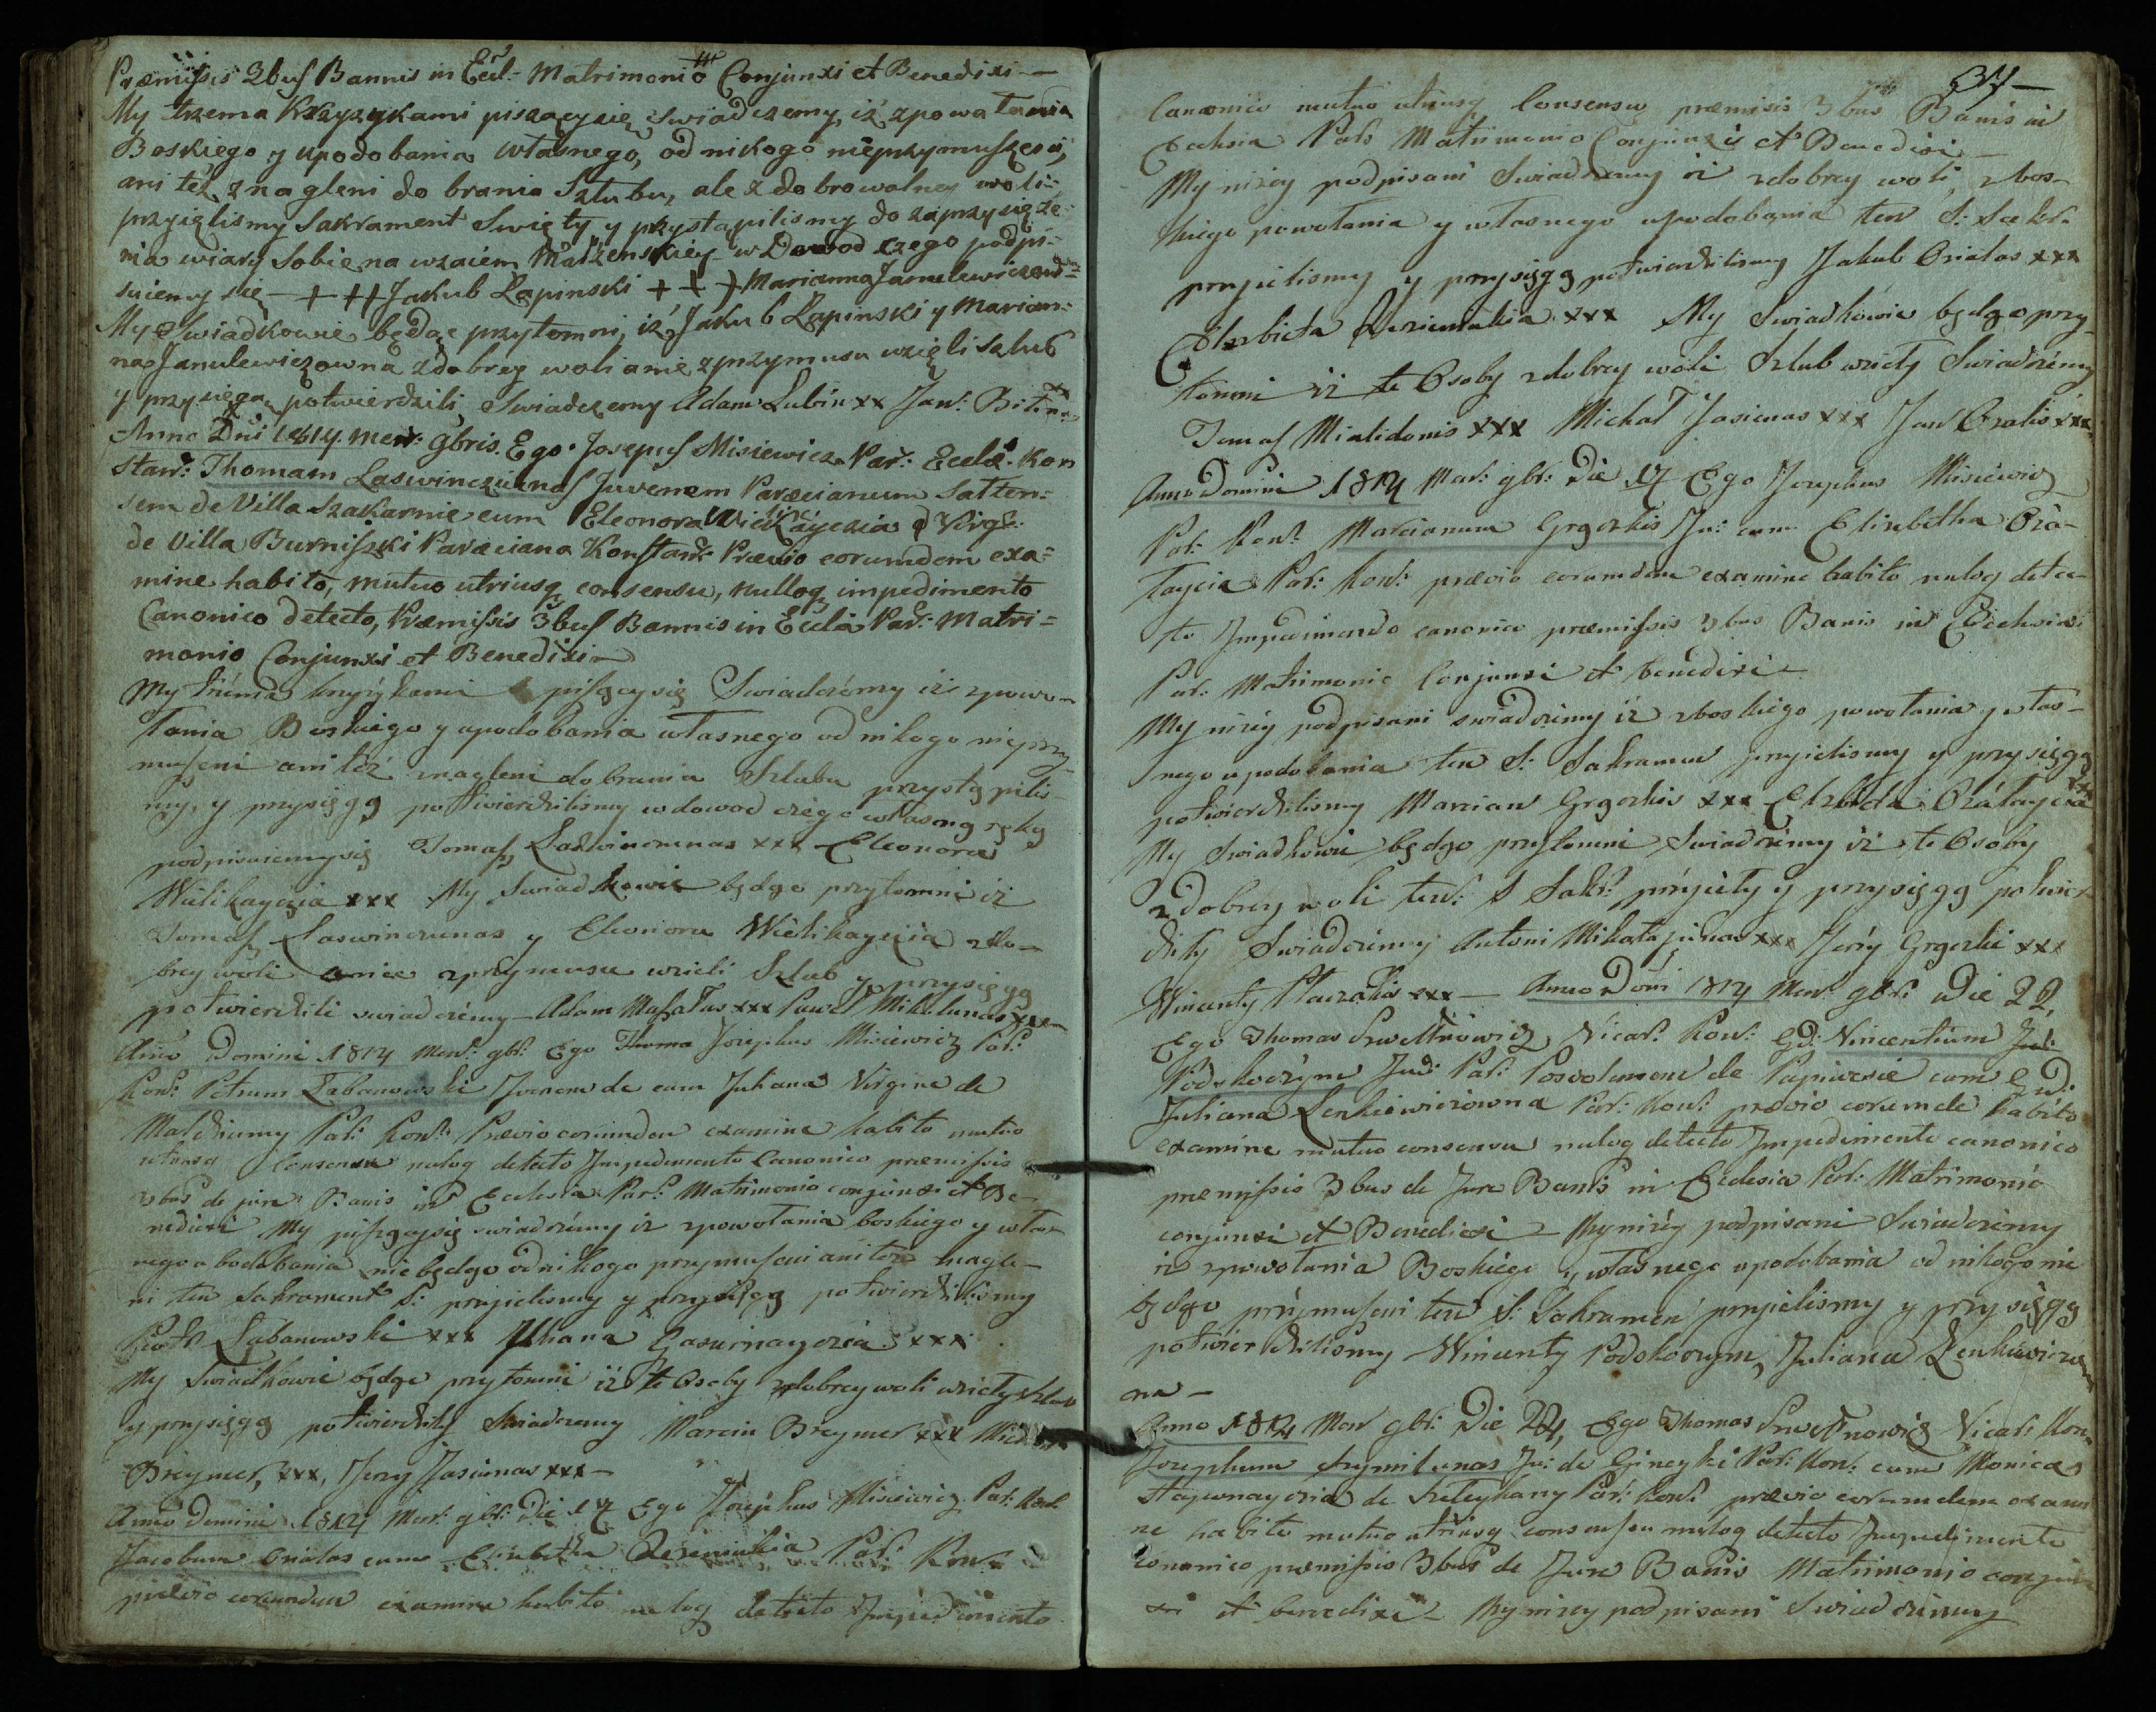 Præmissis 3bus Bannis in Eccl.- Matrimonio Conjunxi et Benedixi —
My trzema Krzyzykami piszący się swiadczemy, iż zpowołania
Boskiego y upodobania własnego, od nikogo nieprzymuszeni,
ani też znagleni do brania Szlubu, ale z dobrowolney woli
przyięlismy Sakrament Swięty y przystąpilismy do zaprzysięże-
nia wiary sobie na wzaiem Małżenskiey w Dowod czego podpi-
suiemy się — + ++ Jakub Łapinski + + + Marianna Janulewiczow-
My Swiadkowie będąc przytomni, iż Jakub Łapinski y Marian-
na Janulewiczowna zdobrey woli a nie zprzymusu wzięli szlub
y przysięgą potwierdzili Swiadczemy Adam Lubin xx Jan
Anno Dni 1814. men: 9bris. Ego Josephus Misiewicz Par: Eccle: Kon
Stan: Thomam Laswinczunas Juvenem Paræcianum Satten=
sem de Villa Szakarnie cum Eleonora Wielikayczia Virg:
de Villa Burniszki Paræciana Konstan: Prævio eorumdem exa=
mine habito, mutuo utriusq consensu, nulloq impedimento
Canonico detecto, Præmissis 3bus Bannis in Eccla Par: Matri=
monio Conjunxi et Benedixi —
My trzema krzyżykami piszący się Swiadczemy iż zpowo-
łania Boskiego y upodobania własnego od nikogo nieprzy-
muszeni ani też znagleni do brania Szlubu przystąpilis-
my, y przysięgą potwierdzilismy w dowod czego własną ręką
podpisuiemy się Tomasz Laswinczunas xxx Eleonora
Wielikayczia xxx My Swiadkowie będąc przytomni iż
Tomasz Laswinczunas y Eleonora Wielikayczia zdo-
brey woli a nie zprzymusu wzieli Szlub y przysięgą
potwierdzili swiadczemy — Adam xxx Paweł Mikelunas xxx
Anno Domini 1814 Men: 9br: Ego Thoma Josephus Misiewicz Par:
Kon: Petrum Łabanowski Juvenem de cum Juliana Virgine de
Par: Kon: Prævio eorumdem examine habito mutuo
utriusq Consensu nuloq detecto Impedimento Canonico præmissis
3bus de jure Banis in Ecclesia Par: Matrimonio conjunxi et Be-
nedixi My piszący się swiadczemy iż zpowołania boskiego y włas-
nego upodobania nie będąc od nikogo przymuszeni ani też znagle-
ni ten Sakrament S: przyielismy y przysięgą potwierdzilismy
Piotr Łabanowski xxx Juliana xxx
My Swiadkowie będąc przytomni iż te Osoby zdobrey woli wzieły szlub
y przysięgą potwierdziły Swiadczemy Marcin Breymer xxx
Breymer, xxx, Jerzy Jasiunas xxx —
Anno Domini 1814 Men: 9br: Die 17 Ego Josephus Misiewicz Par: Kon:
Jacobum Ozialas cum Elizbetha Par: Kon:
prævio eorumdem examine habito nuloq detecto Impedimento
37 —
Canonico mutuo utriusq Consensu præmisis 3bus Banis in
Ecclesia Par: Matrimonio Conjunxi et Benedixi —
My niżey podpisani Swiadczemy iż zdobrey woli, zbos-
kiego powołania y własnego upodobania ten S: Sakr.
przyielismy y przysięgą potwierdzilismy Jakub Ozialas xxx
Elzbieta xxx My Swiadkowie będąc przy-
tomni iż te Osoby zdobrey woli Szlub wzieły Swiadczemy
Tomasz xxx Michał Jasiunas xxx Jan xxx
Anno Domini 1814 Men: 9br: Die 17 Ego Josephus Misiewicz
Par: Kon: Marcianum Grgozkis Ju: cum Elizbetha
Par: Kon: prævio eorumdem examine habito nuloq detec-
to Impedimento canonico præmissis 3bus Banis in Ecclesia
Par: Matrimonio Conjunxi et benedixi —
My niżey podpisani swiadczemy iż zboskiego powołania y włas-
nego upodobania ten S: Sakrament przyielismy y przysięgą
potwierdzilismy Marcian Grgozkis xxx Elzbieta xxx
My Swiadkowie będąc przytomni Swiadczemy iż te Osoby
zdobrey woli ten S Sakr: przyieły y przysięgą potwier-
dziły Swiadczemy Antoni xxx Jerzy Grgozki xxx
Wincenty xxx — Anno Domi 1814 Men: 9br: Die 22,
Ego Thomas Vicar: Kon: GD: Vincentium
Podskoczym Jud: Par: de cum GD:
Juliana Lenkiewiczowna Par: Kon: prævio eorumde habito
examine mutuo consensu nuloq detecto Impedimento canonico
præmissis 3bus de Jure Banis in Ecclesia Par: Matrimonio
conjunxi et Benedixi — My niżey podpisani Swiadczemy
iż zpowołania Boskiego y własnego upodobania od nikogo nie
będąc przymuszeni ten S: Sakramen przyielismy y przysięgą
potwierdzilismy Wincenty Podskoczym, Juliana Lenkiewiczow
na —
Anno 1814 Men 9br: Die 24, Ego Thomas Vicar: Kon:
Josephum Szymilunas Ju: de Gineyki Par: Kon: cum Monica
de Par: Kon: prævio eorumdem exami
ne habito mutuo utriusq consensu nuloq detecto Impedimento
canonico præmissis 3bus de Jure Banis Matrimonio conjun
xi et benedixi — My niżey podpisani Swiadczemy